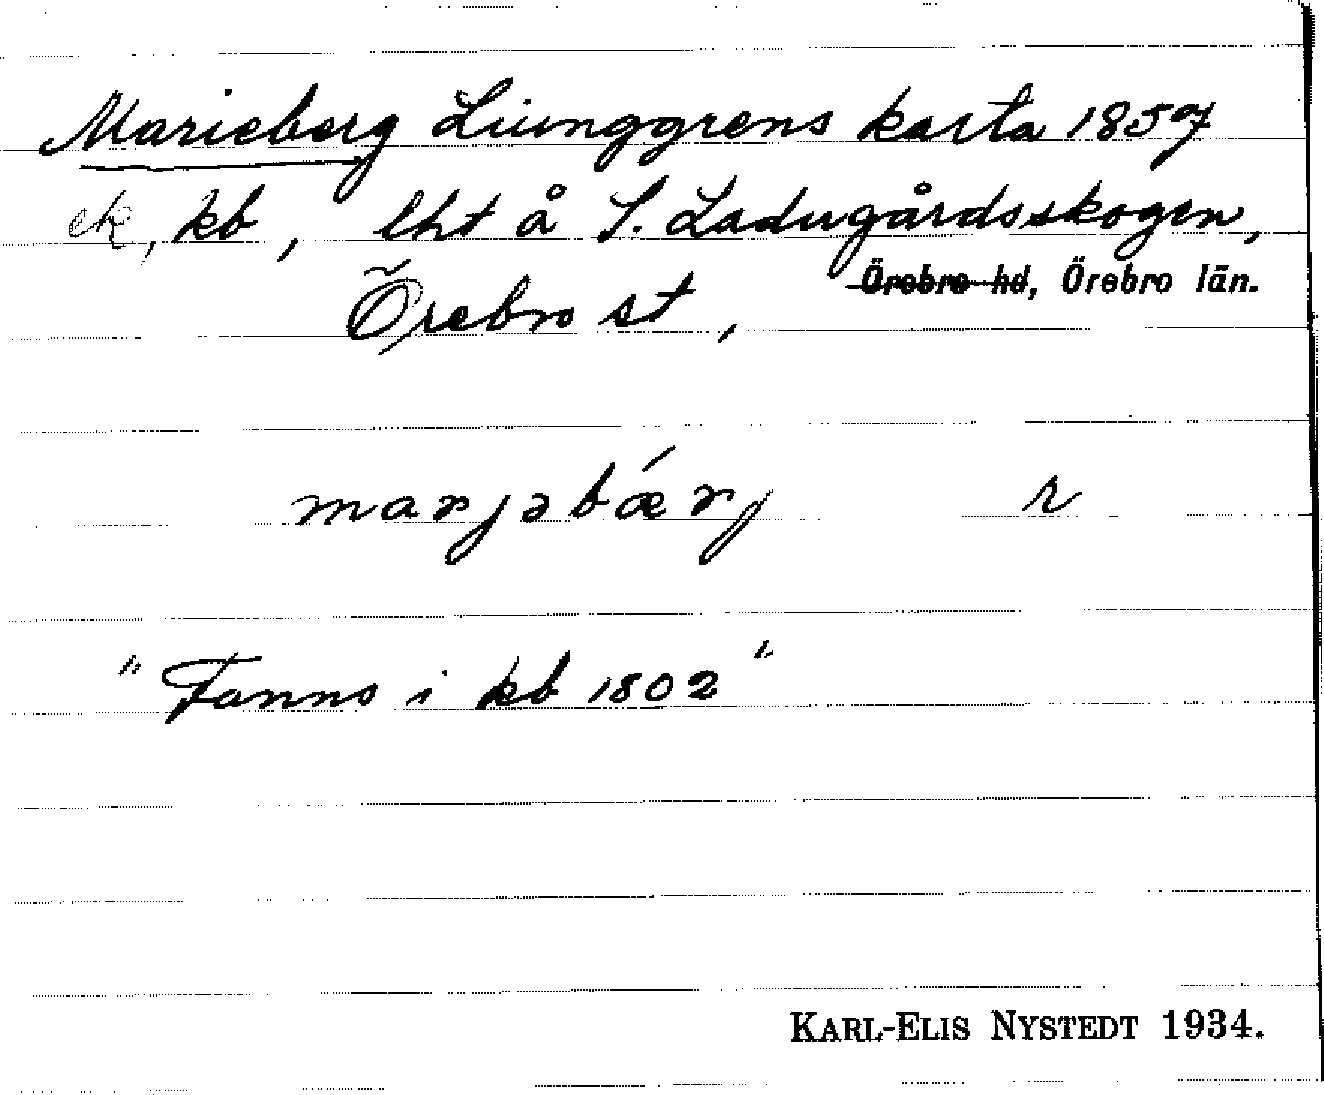 Marieberg Liunggrens karta 1857
ek, kb, lht å S. Ladugårdsskogen,
Örebro st, Örebro hd, Örebro län.
marjəbǽrj r
"Fanns i kb 1802"
KARL-ELIS NYSTEDT 1934.